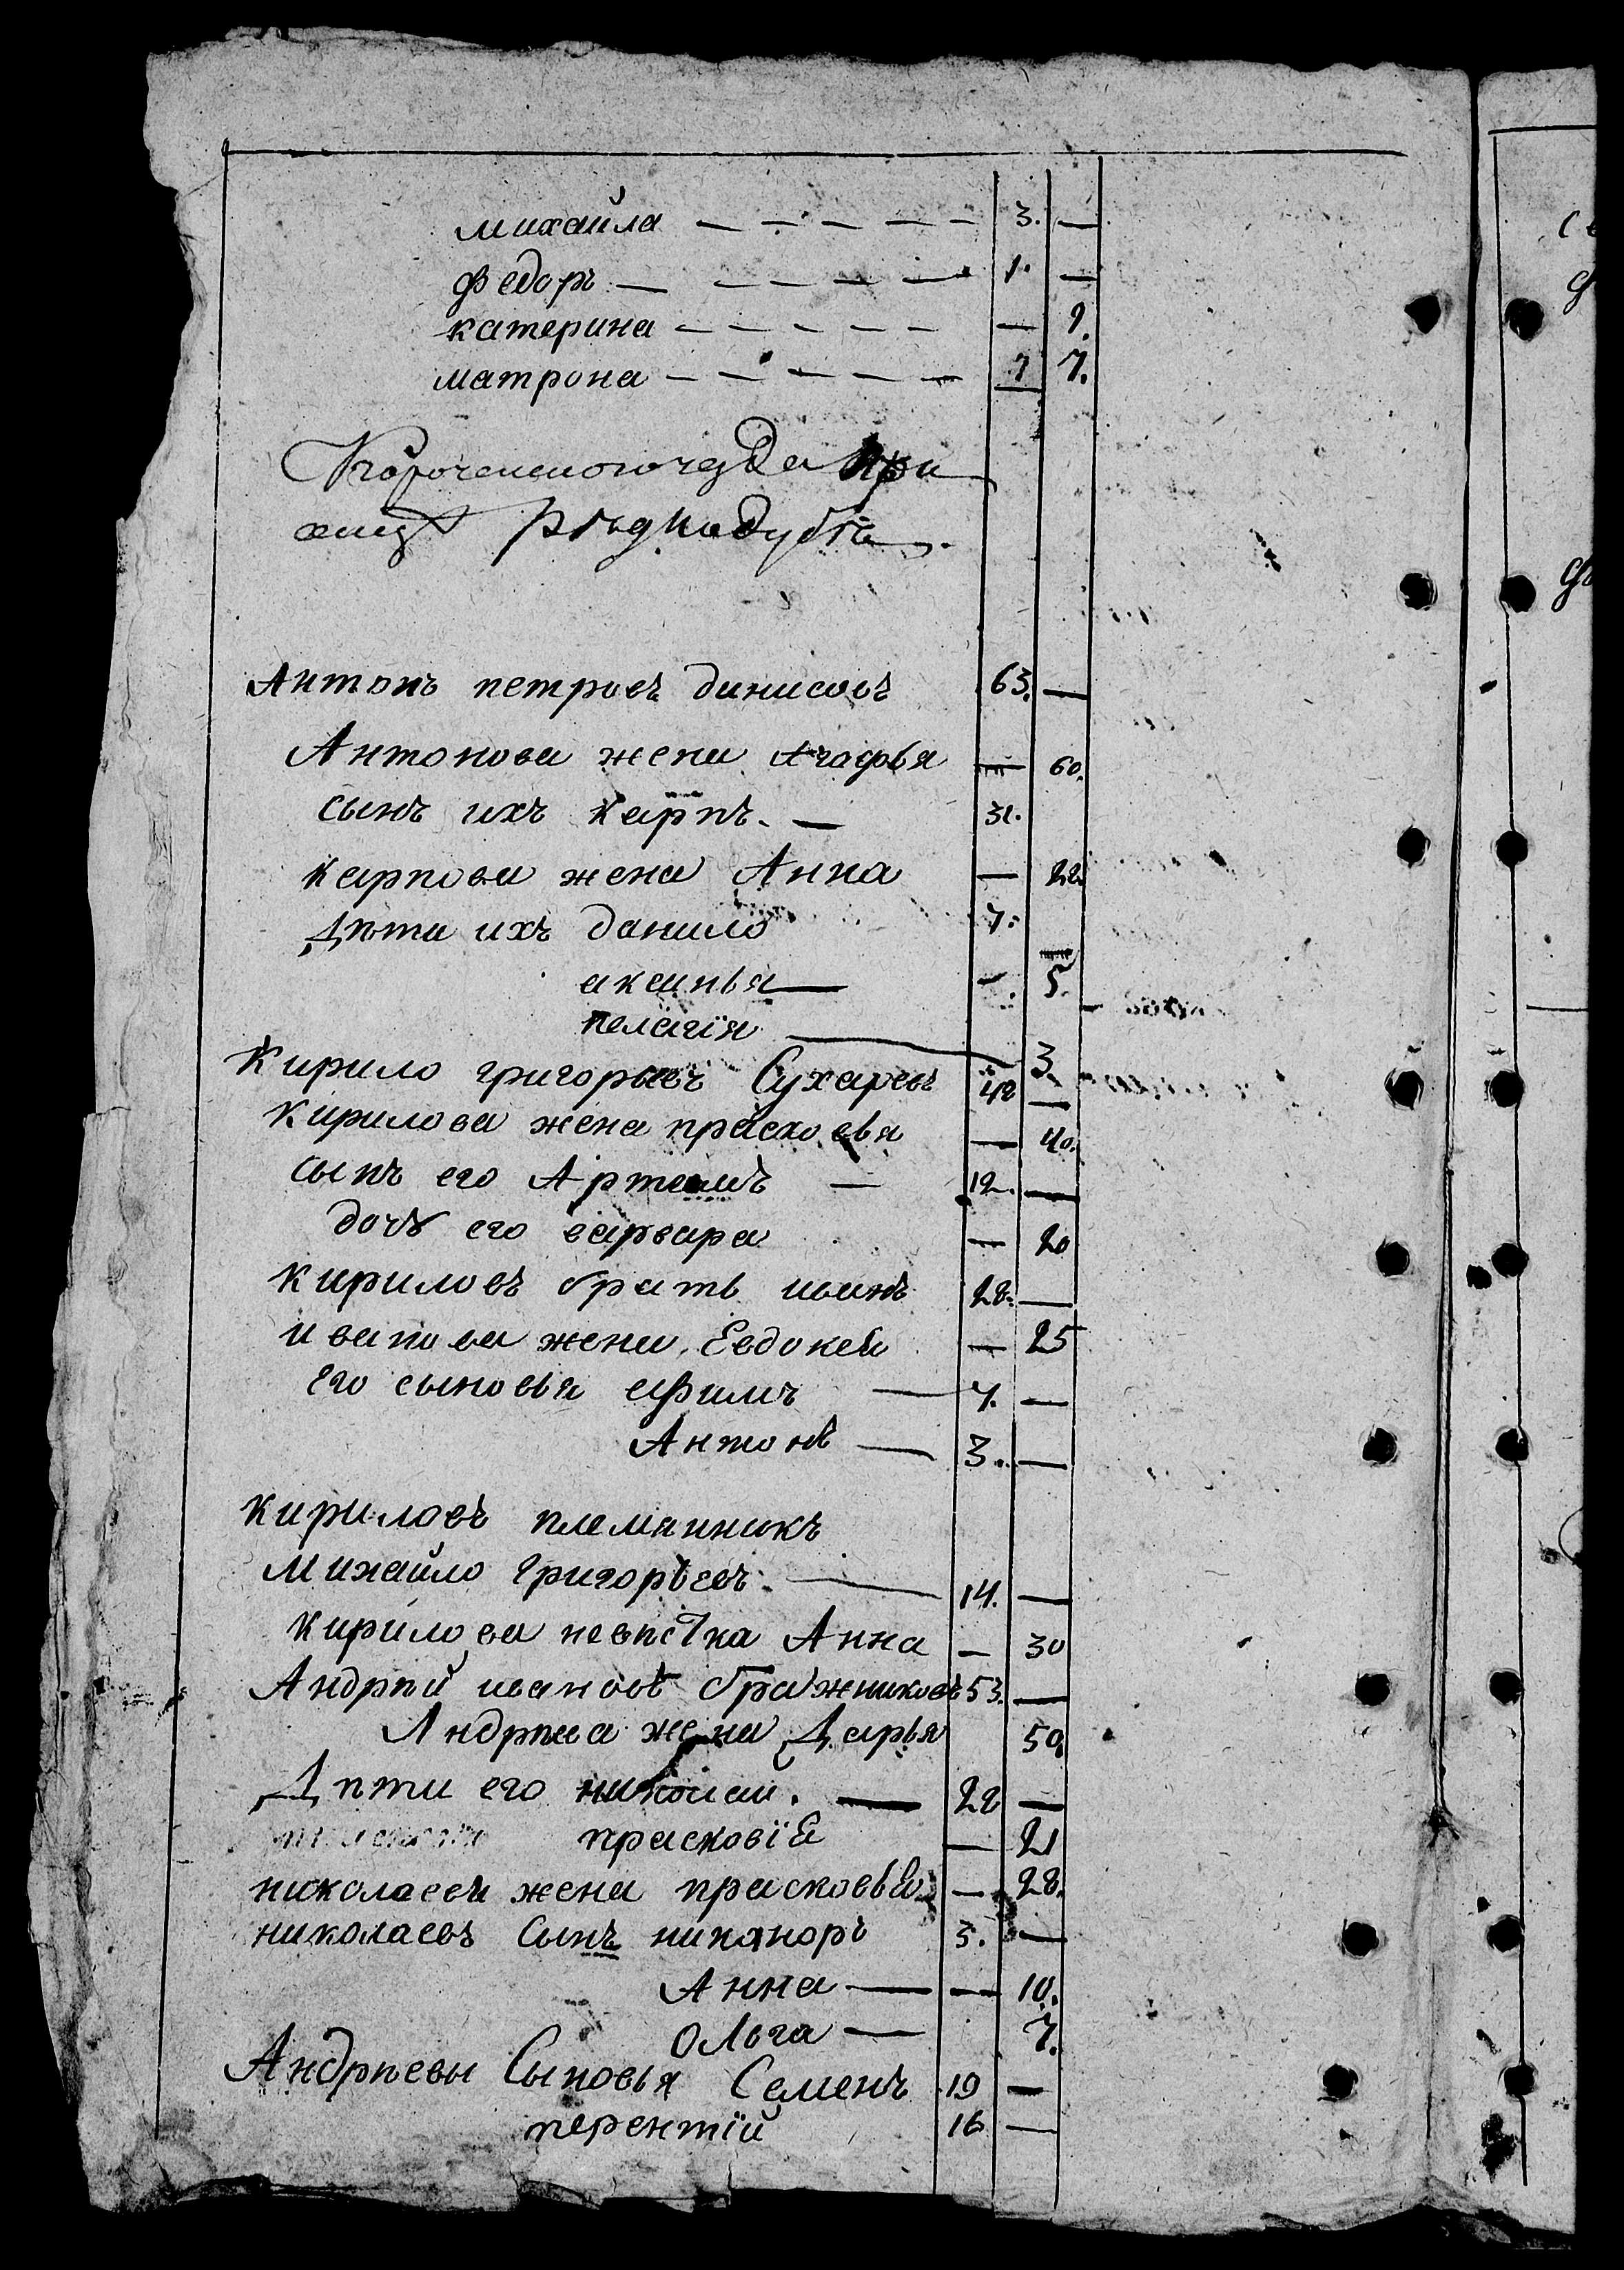 михайла — — — — — 3. —
федоръ — — — — — 1. —
катерина — — — — — — 9.
матрона — — — — — 7.
Короченского уезда при
Антонъ петровъ динисовъ 63. —
Антонова жена Агафья — 60.
сынъ ихъ карпъ. — 31.
карпова жена Анна — 22.
Дѣти ихъ данило 7.
аксинья — — 5.
пелагія — 3.
Кирило григорьевъ Сухаревъ 42 —
Кирилова жена прасковья — 40.
сынъ его Артемъ — 12. —
дочь его варвара — 20
кириловъ братъ иванъ 28. —
иванова жена Евдокея — 25
Его сыновья афимъ — 7. —
Антонъ — 3. —
кириловъ племянникъ
михайло григорьевъ — 14. —
кирилова невѣстка Анна — 30
Андрѣй ивановъ бражниковъ 53. —
Андрѣева жена Дарья 50.
Дѣти его николай. — 22 —
прасковіа — 21
николаева жена прасковья — 28.
николаевъ сынъ никаноръ 3. —
Анна — — 10.
Ольга — 7.
Андрѣевы Сыновья Семенъ 19 —
терентій 16 —